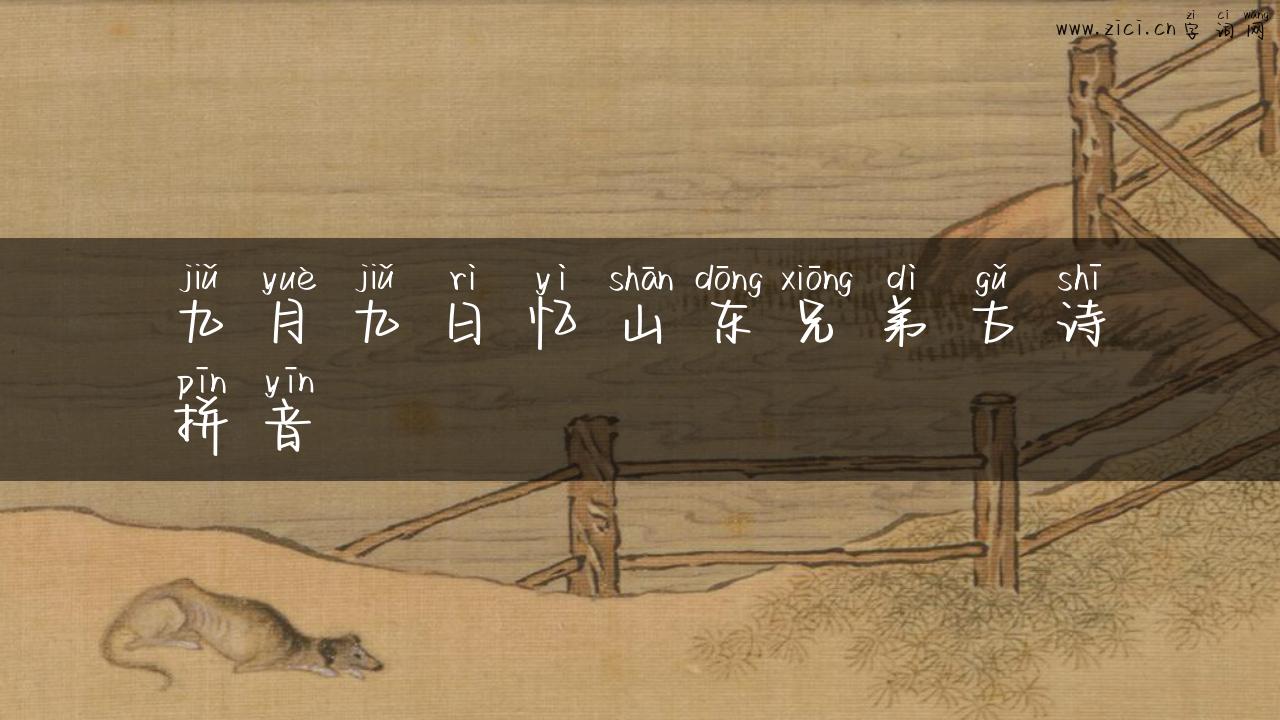 zì cí wǎng
www.zici.cn 字词网
jiǔ yuè jiǔ rì yì shān dōng xiōng dì gǔ shī
九月九日忆山东兄弟古诗
pīn yīn
拼音